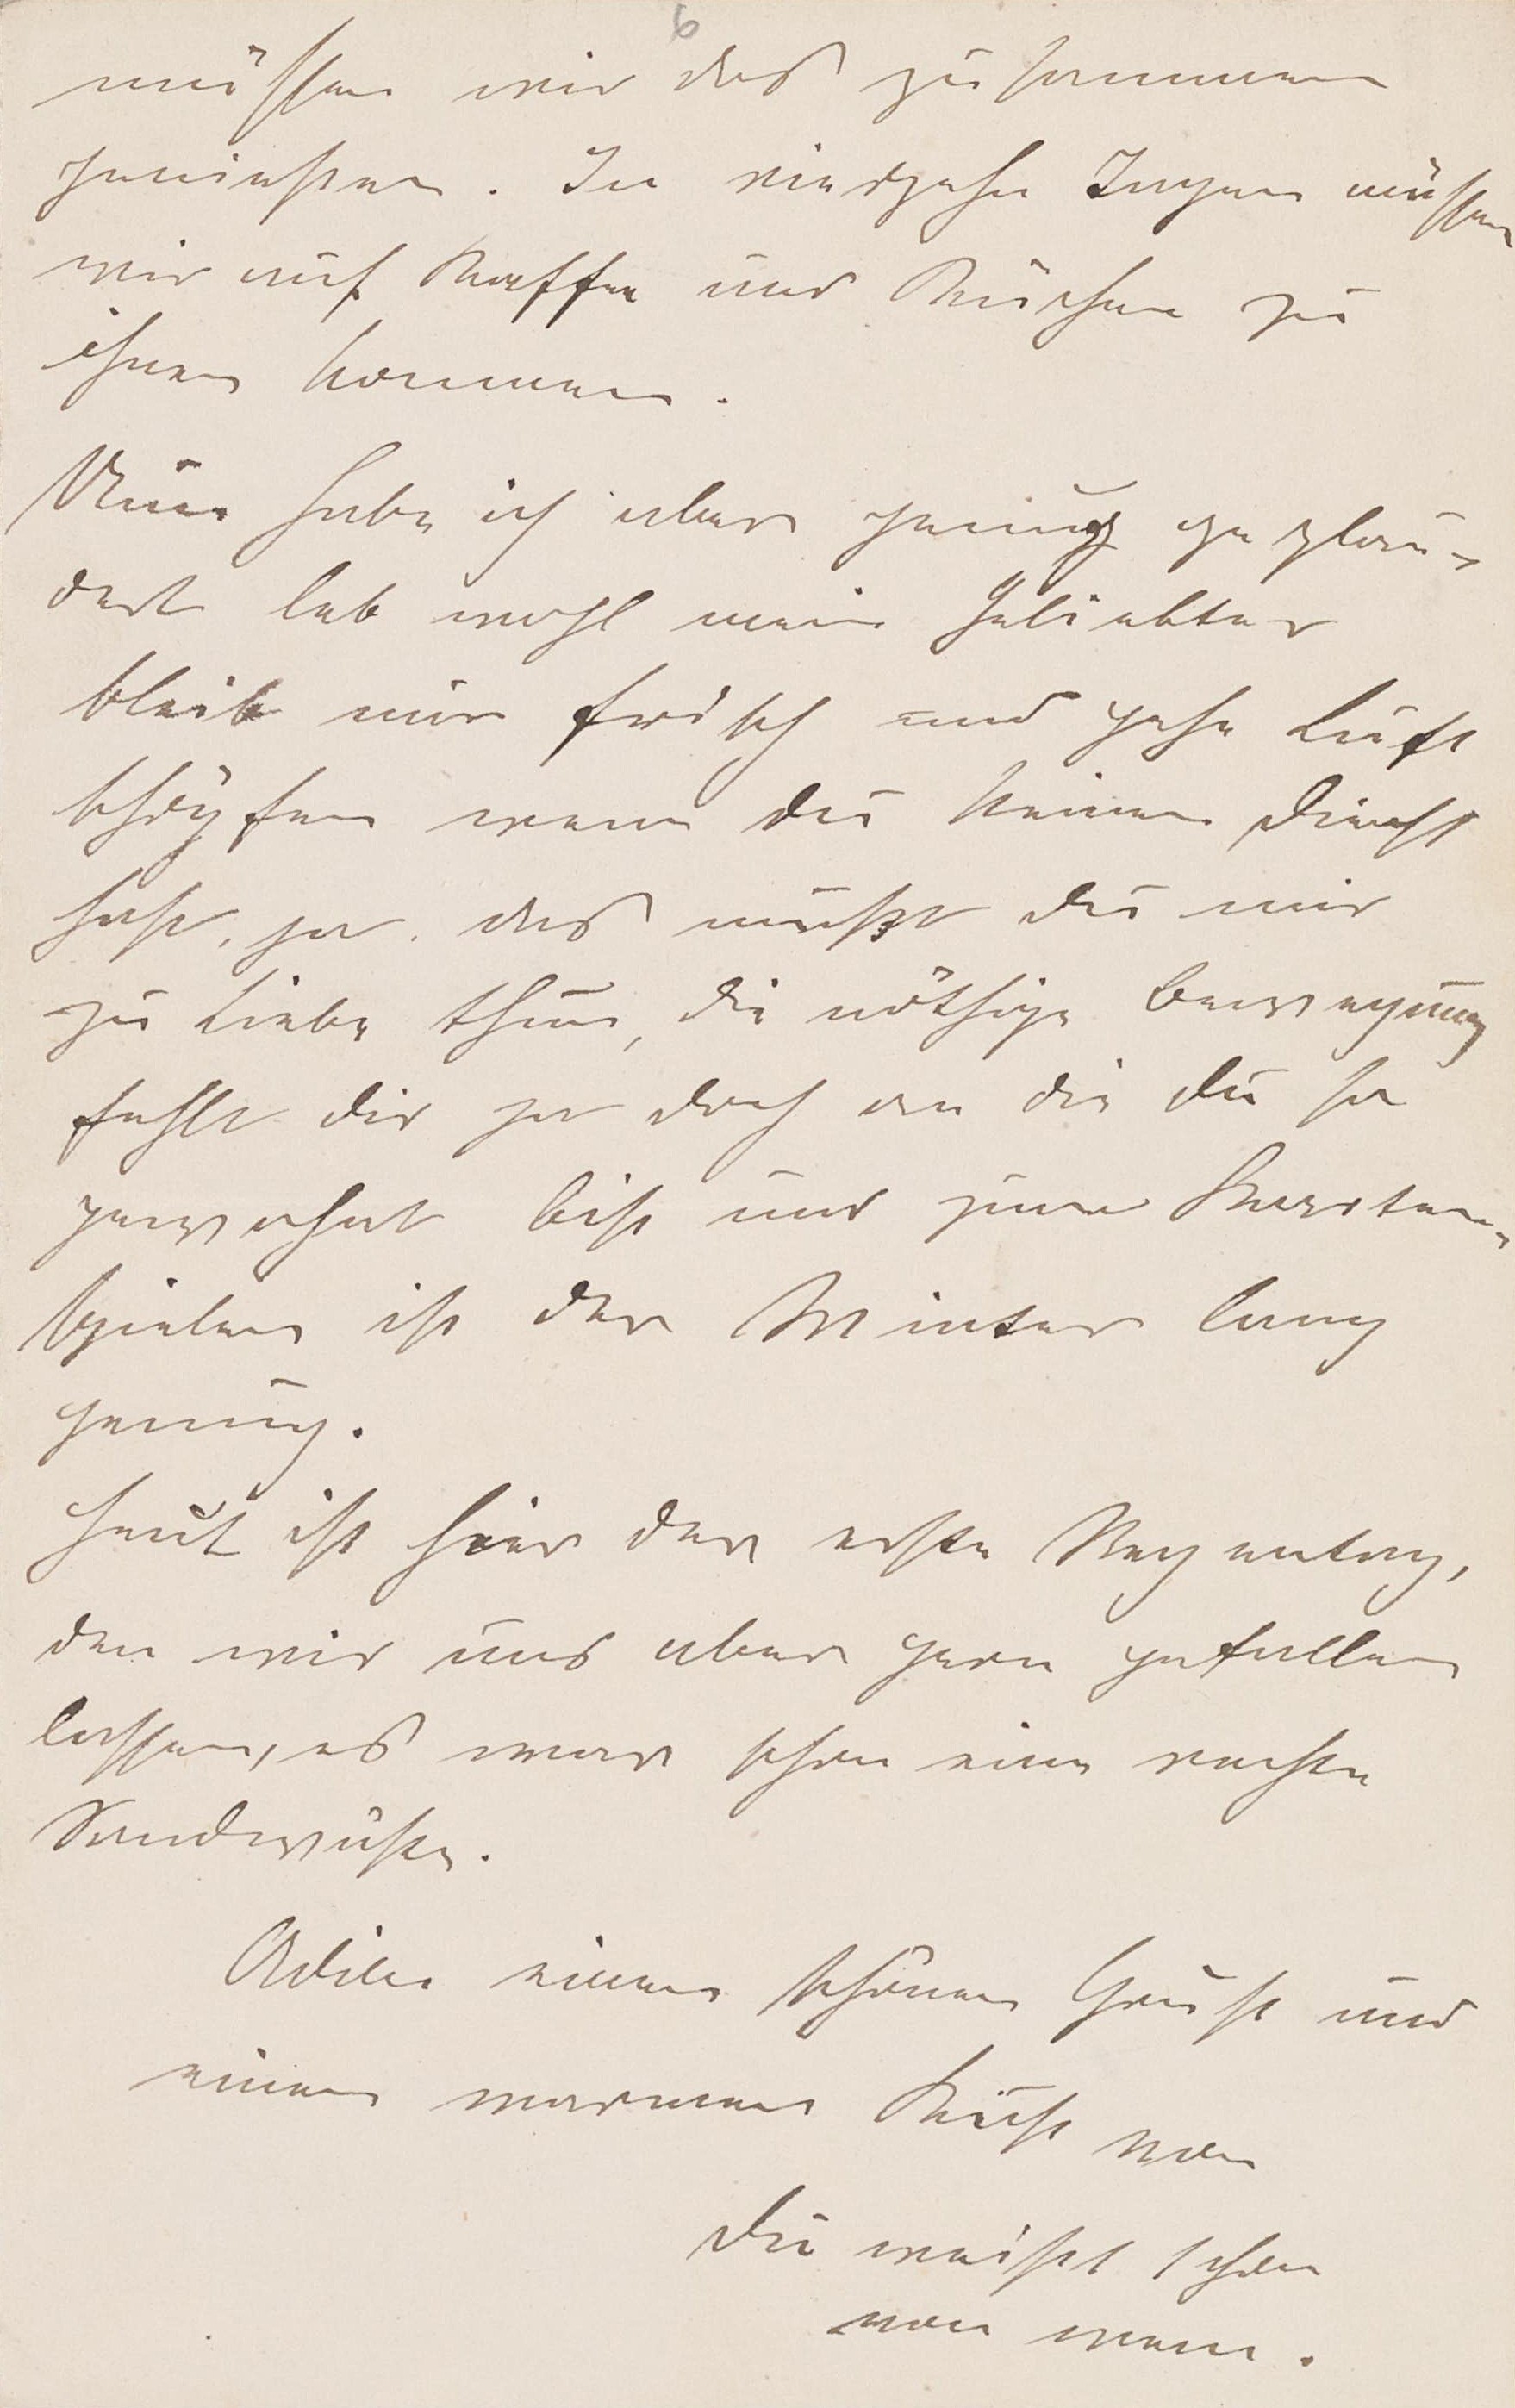 6
müssen wir das zusammen
genießen. In vierzehn Tagen müssen
wir auf Kaffee und Kuchen zu
ihnen kommen.
Nun habe ich aber genug geplau-
dert leb wohl mein Geliebter
bleib mir frisch und gehe Luft
schöpfen wenn du keinen Dienst
hast, ja das mußt du mir
zu Liebe thun, die nöthige Bewegung
fehlt dir ja doch an die du so
gewohnt bist und zum Karten-
spielen ist der Winter lang
genug.
Heut ist hier der erste Regentag,
den wir uns aber gern gefallen
lassen, es war schon eine rechte
Sandwüste.
Adieu einen schönen Gruß und
einen warmen Kuß von
du weißt schon
von wem.